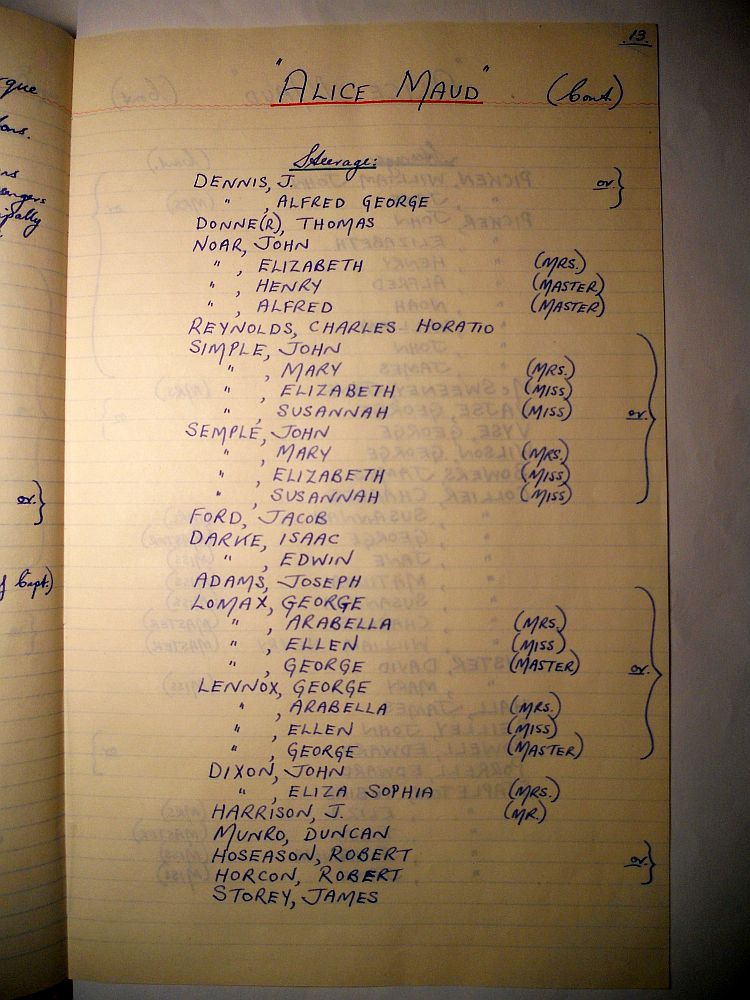 13.
"ALICE MAUD" (Cont.)
Steerage:
DENNIS, J.
" , ALFRED GEORGE or }
DONNE(R), THOMAS
NOAR, JOHN
" , ELIZABETH (MRS.)
" , HENRY (MASTER)
" , ALFRED (MASTER)
REYNOLDS, CHARLES HORATIO
SIMPLE, JOHN
" , MARY (MRS.)
" , ELIZABETH (MISS)
" , SUSANNAH (MISS) or. }
SEMPLE, JOHN
" , MARY (MRS.)
" , ELIZABETH (MISS)
" , SUSANNAH (MISS)
FORD, JACOB
DARKE, ISAAC
" , EDWIN
ADAMS, JOSEPH
LOMAX, GEORGE
" , ARABELLA (MRS.)
" , ELLEN (MISS)
" , GEORGE (MASTER) or. }
LENNOX, GEORGE
" , ARABELLA (MRS.)
" , ELLEN (MISS)
" , GEORGE (MASTER)
DIXON, JOHN
" , ELIZA SOPHIA (MRS.)
HARRISON, J. (MR.)
MUNRO, DUNCAN
HOSEASON, ROBERT or. }
HORCON, ROBERT
STOREY, JAMES